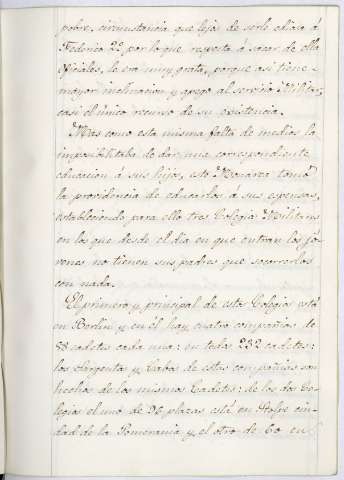 pobre, circunstancia que lejos de serle obice á
Federico 2º por lo que respecta á sacar de ella
oficiales, le era muy grata, porque asi tiene
mayor inclinacion y apego al servicio Militar,
casi el único recurso de su existencia.
Mas como esta misma falta de medios la
imposibilitaba de dar una correspondiente
educacion á sus hijos, este Monarca tomó
la providencia de educarlos á sus espensas,
estableciendo para ello tres Colegios Militares
en los que desde el dia en que entran los jó-
venes no tienen sus padres que socorrerlos
con nada.
El primero y principal de estos Colegios está
en Berlin y en él hay cuatro compañias de
58 cadetes cada una: en todas 232 cadetes:
los Sargentos y Cabos de estas compañias son
hechos de los mismos Cadetes: de los dos Co-
legios el uno de 96 plazas está en Stolpe ciu-
dad de la Pomerania y el otro de 60 en